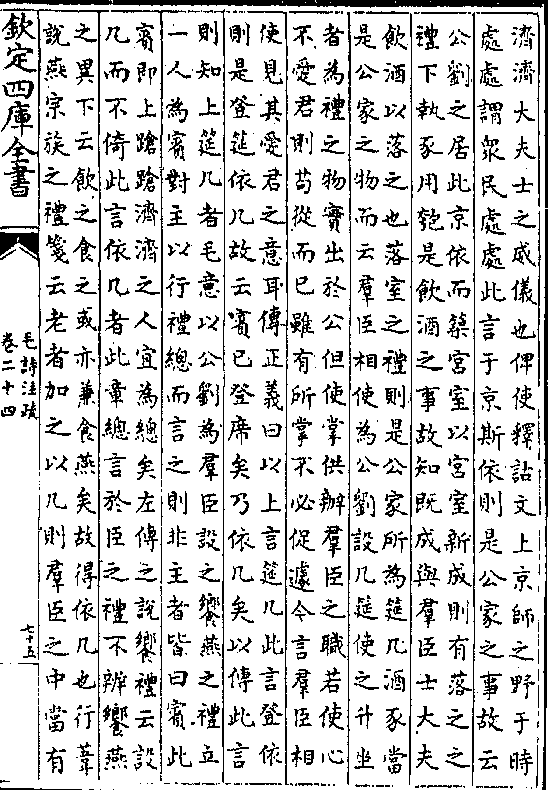 濟濟大夫士之威儀也俾使釋詁文上京師之野于時
處處謂衆民處處此言于京斯依則是公家之事故云
公劉之居此京依而築宮室以宮室新成則有落之之
禮下執豕用匏是飲酒之事故知既成與羣臣士大夫
飲酒以落之也落室之禮則是公家所為筵几酒豕當
是公家之物而云羣臣相使為公劉設几筵使之升坐
者為禮之物實出於公但使掌供辦羣臣之職若使心
不愛君則苟從而已雖有所掌不必促遽今言羣臣相
使見其愛君之意耳傳正義曰以上言筵几此言登依
則是登筵依几故云賓已登席矣乃依几矣以傳此言
則知上筵几者毛意以公劉為羣臣設之饗燕之禮立
一人為賓對主以行禮總而言之則非主者皆曰賓此
賓即上蹌蹌濟濟之人宜為總矣左傳之說饗禮云設
几而不倚此言依几者此章總言於臣之禮不辨饗燕
之異下云飲之食之或亦兼食燕矣故得依几也行葦
說燕宗族之禮箋云老者加之以几則羣臣之中當有
欽定四庫全書
毛詩注疏
卷二十四
七十五